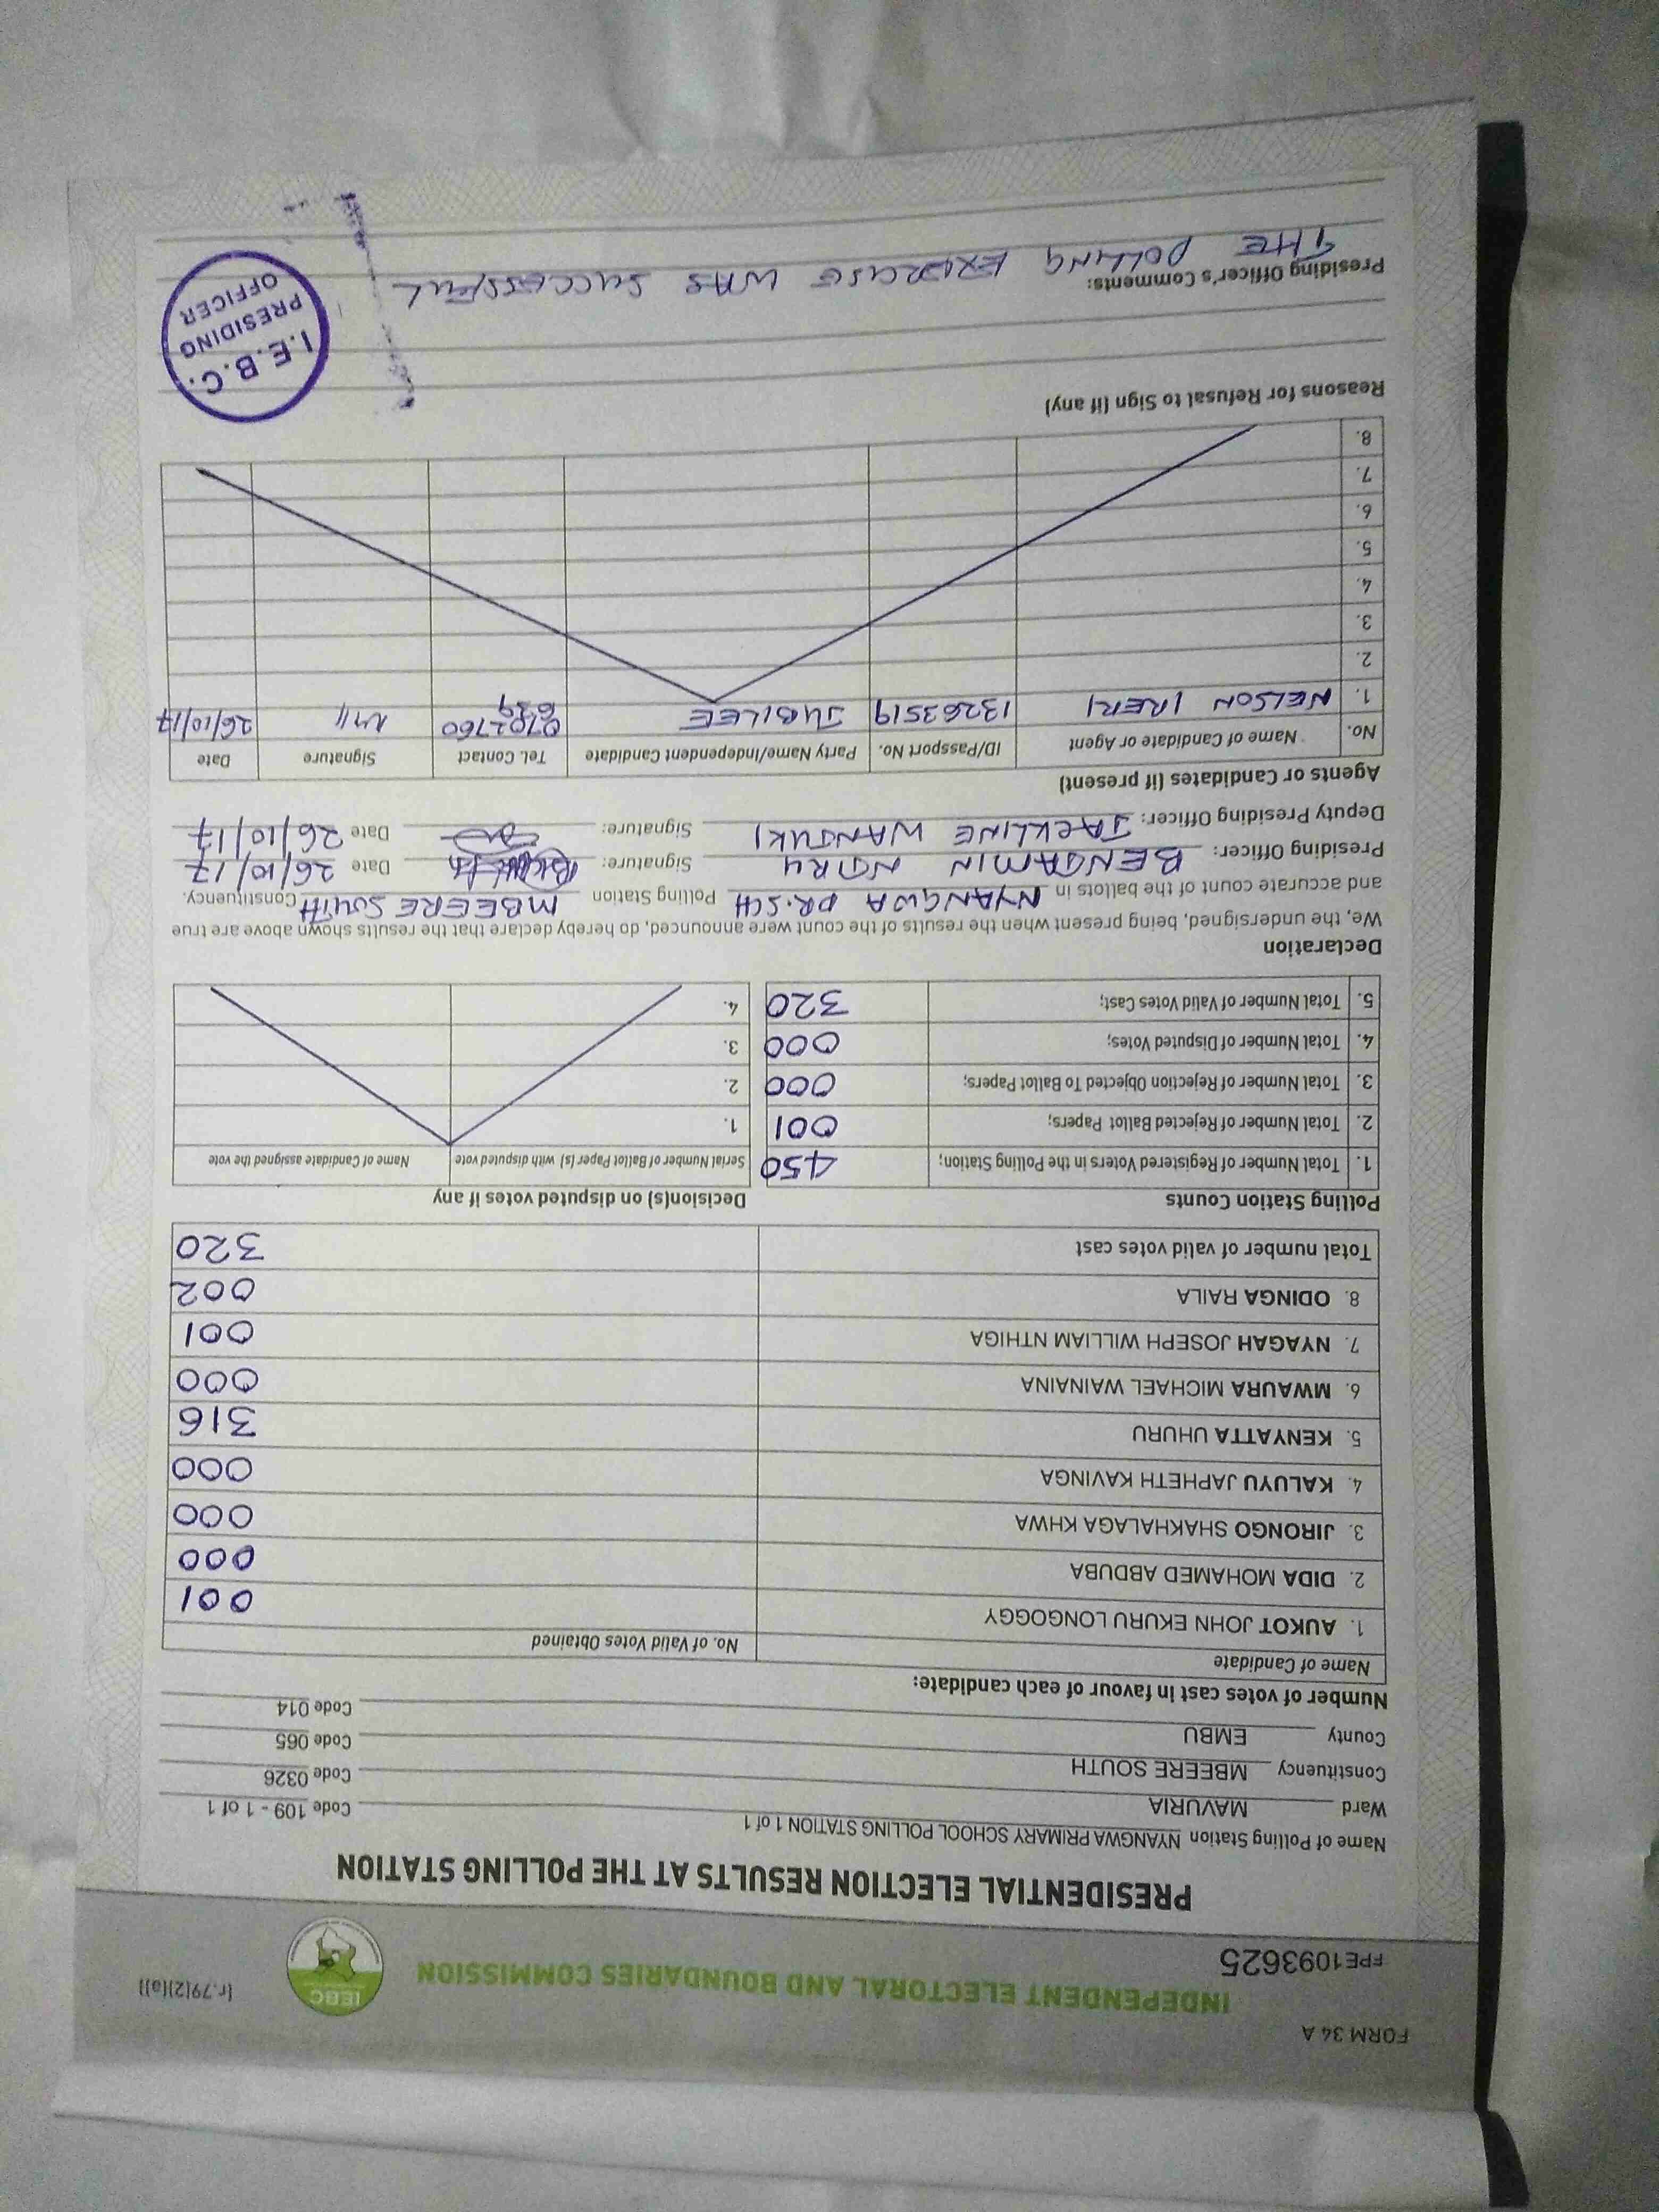 FORM 34 A
[r.79(2)(a)]
INDEPENDENT ELECTORAL AND BOUNDARIES COMMISSION
IEBC
FPE1093625
PRESIDENTIAL ELECTION RESULTS AT THE POLLING STATION
Name of Polling Station NYANGWA PRIMARY SCHOOL POLLING STATION 1 of 1
Ward MAVURIA Code 109 - 1 of 1
Constituency MBEERE SOUTH Code 0326
County EMBU Code 065
Code 014
Number of votes cast in favour of each candidate:
Name of Candidate No. of Valid Votes Obtained
1. AUKOT JOHN EKURU LONGOGGY 001
2. DIDA MOHAMED ABDUBA 000
3. JIRONGO SHAKHALAGA KHWA 000
4. KALUYU JAPHETH KAVINGA 000
5. KENYATTA UHURU 316
6. MWAURA MICHAEL WAINAINA 000
7. NYAGAH JOSEPH WILLIAM NTHIGA 001
8. ODINGA RAILA 002
Total number of valid votes cast 320
Polling Station Counts
1. Total Number of Registered Voters in the Polling Station; 450
2. Total Number of Rejected Ballot Papers; 001
3. Total Number of Rejection Objected To Ballot Papers; 000
4. Total Number of Disputed Votes; 000
5. Total Number of Valid Votes Cast; 320
Decision(s) on disputed votes if any
Serial Number of Ballot Paper (s) with disputed vote Name of Candidate assigned the vote
1.
2.
3.
4.
Declaration
We, the undersigned, being present when the results of the count were announced, do hereby declare that the results shown above are true
and accurate count of the ballots in NYANGWA PR.SCH Polling Station MBEERE SOUTH Constituency.
Presiding Officer: BENJAMIN NDRU Signature: Date 26/10/17
Deputy Presiding Officer: JACKLINE WANJUKI Signature: Date 26/10/17
Agents or Candidates (if present)
No. Name of Candidate or Agent ID/Passport No. Party Name/Independent Candidate Tel. Contact Signature Date
1. NELSON IRERI 13263519 JUBILEE 0702760 26/10/17
2.
3.
4.
5.
6.
7.
8.
Reasons for Refusal to Sign (if any)
Presiding Officer's Comments:
THE POLLING EXERCISE WAS SUCCESSFUL
I.E.B.C.
PRESIDING
OFFICER